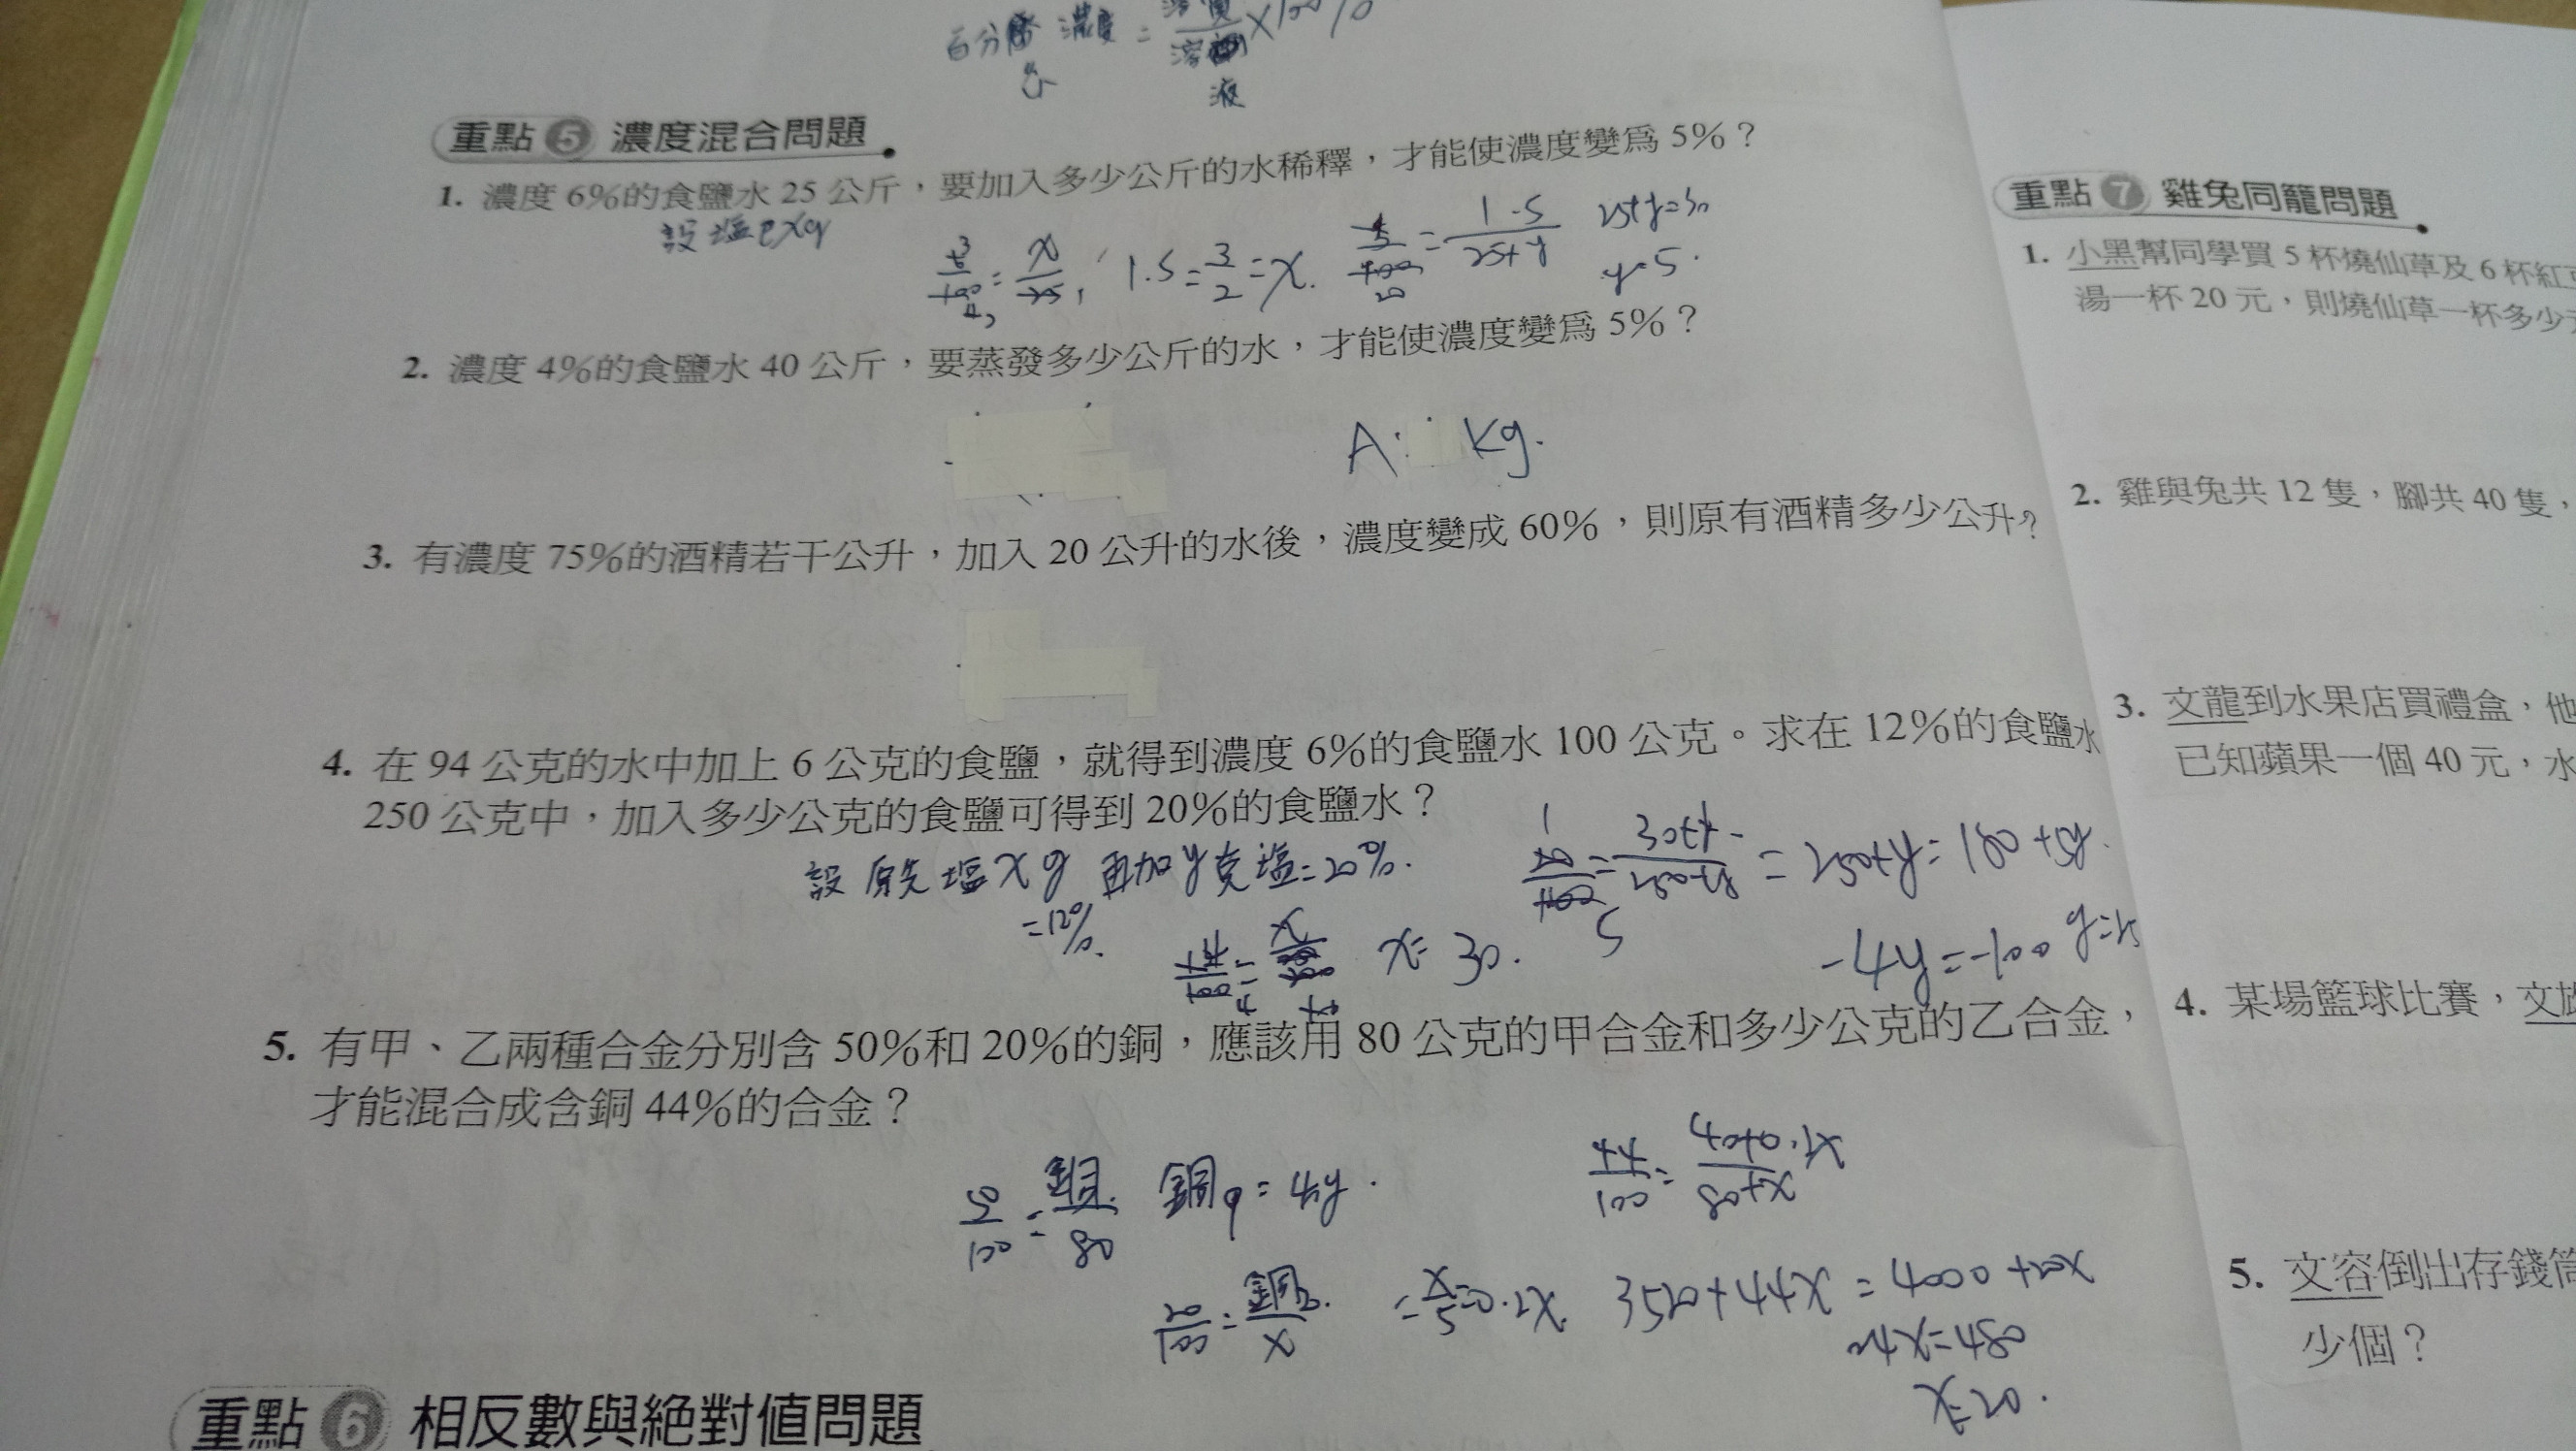 百分 濃度 = 溶質 × 100%
溶
液
重點 5 濃度混合問題
1. 濃度 6%的食鹽水 25 公斤，要加入多少公斤的水稀釋，才能使濃度變為 5%？
1.5 = 3/2 = x.
1.5/25+y
25+y=30
y=5.
2. 濃度 4%的食鹽水 40 公斤，要蒸發多少公斤的水，才能使濃度變為 5%？
A: kg.
3. 有濃度 75%的酒精若干公升，加入 20 公升的水後，濃度變成 60%，則原有酒精多少公升？
4. 在 94 公克的水中加上 6 公克的食鹽，就得到濃度 6%的食鹽水 100 公克。求在 12%的食鹽水
250 公克中，加入多少公克的食鹽可得到 20%的食鹽水？
設 原先 塩 x g 再加 y 克 塩=20%.
=12%.
x= 30.
-4y=-100
5. 有甲、乙兩種合金分別含 50%和 20%的銅，應該用 80 公克的甲合金和多少公克的乙合金，
才能混合成含銅 44%的合金？
重點 6 相反數與絕對值問題
重點 7 雞兔同籠問題
1. 小黑幫同學買 5 杯燒仙草及 6 杯紅
湯一杯 20 元，則燒仙草一杯多少
2. 雞與兔共 12 隻，腳共 40 隻，
3. 文龍到水果店買禮盒，他
已知蘋果一個 40 元，水
4. 某場籃球比賽，文
5. 文容倒出存錢筒
少個？